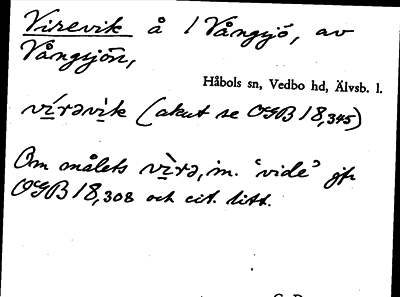 Virevik å 1 Vångsjö, av
Vångsjön,
Håbols sn, Vedbo hd, Älvsb. l.
vírəvìk (akut se OGB 18,345)
Om målets vìrə, m. 'vide' jfr
OGB 18,308 och cit. litt.